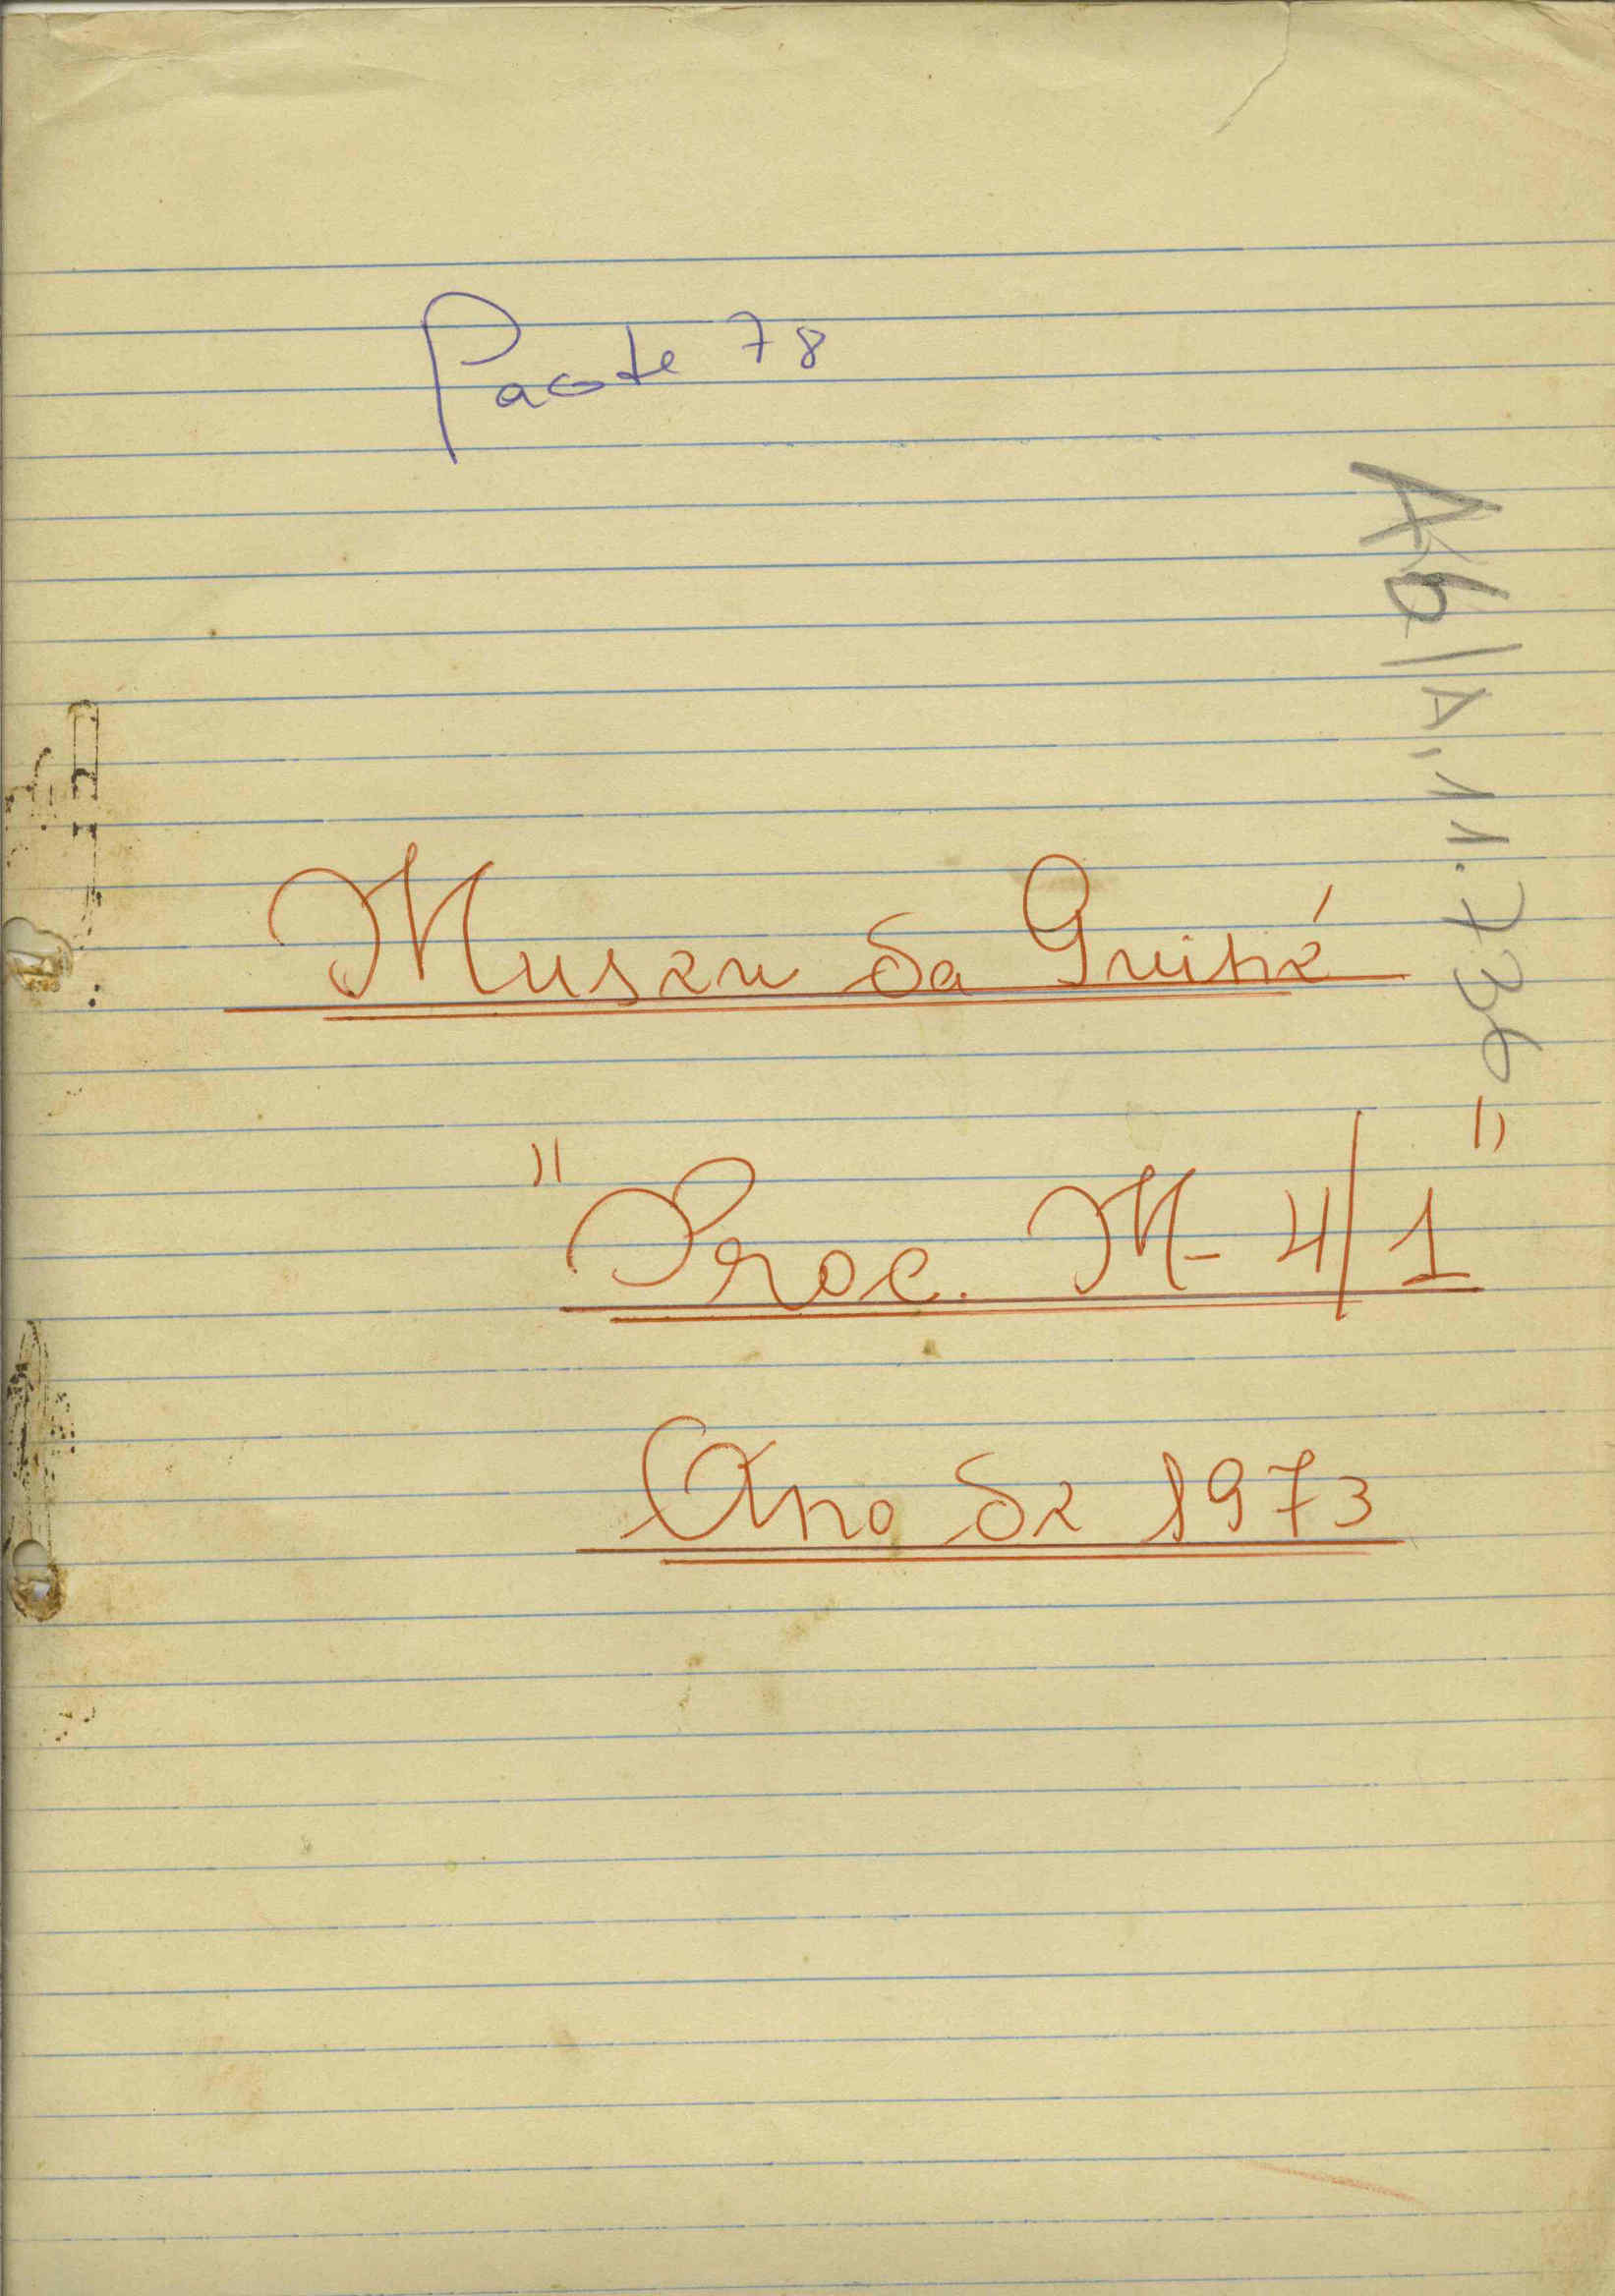 Pacote 78
A6/A,11.736
Museu da Guiné
"Proc. M- 4/1"
Ano de 1973